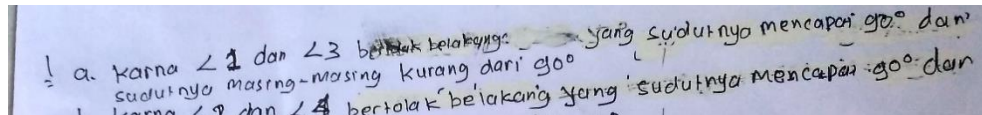 1 a. karna ∠1 dan ∠3 bertolak belakang yang sudutnya mencapai 90° dan
sudutnya masing-masing kurang dari 90°
dan ∠4 bertolak belakang yang sudutnya mencapai 90° dan